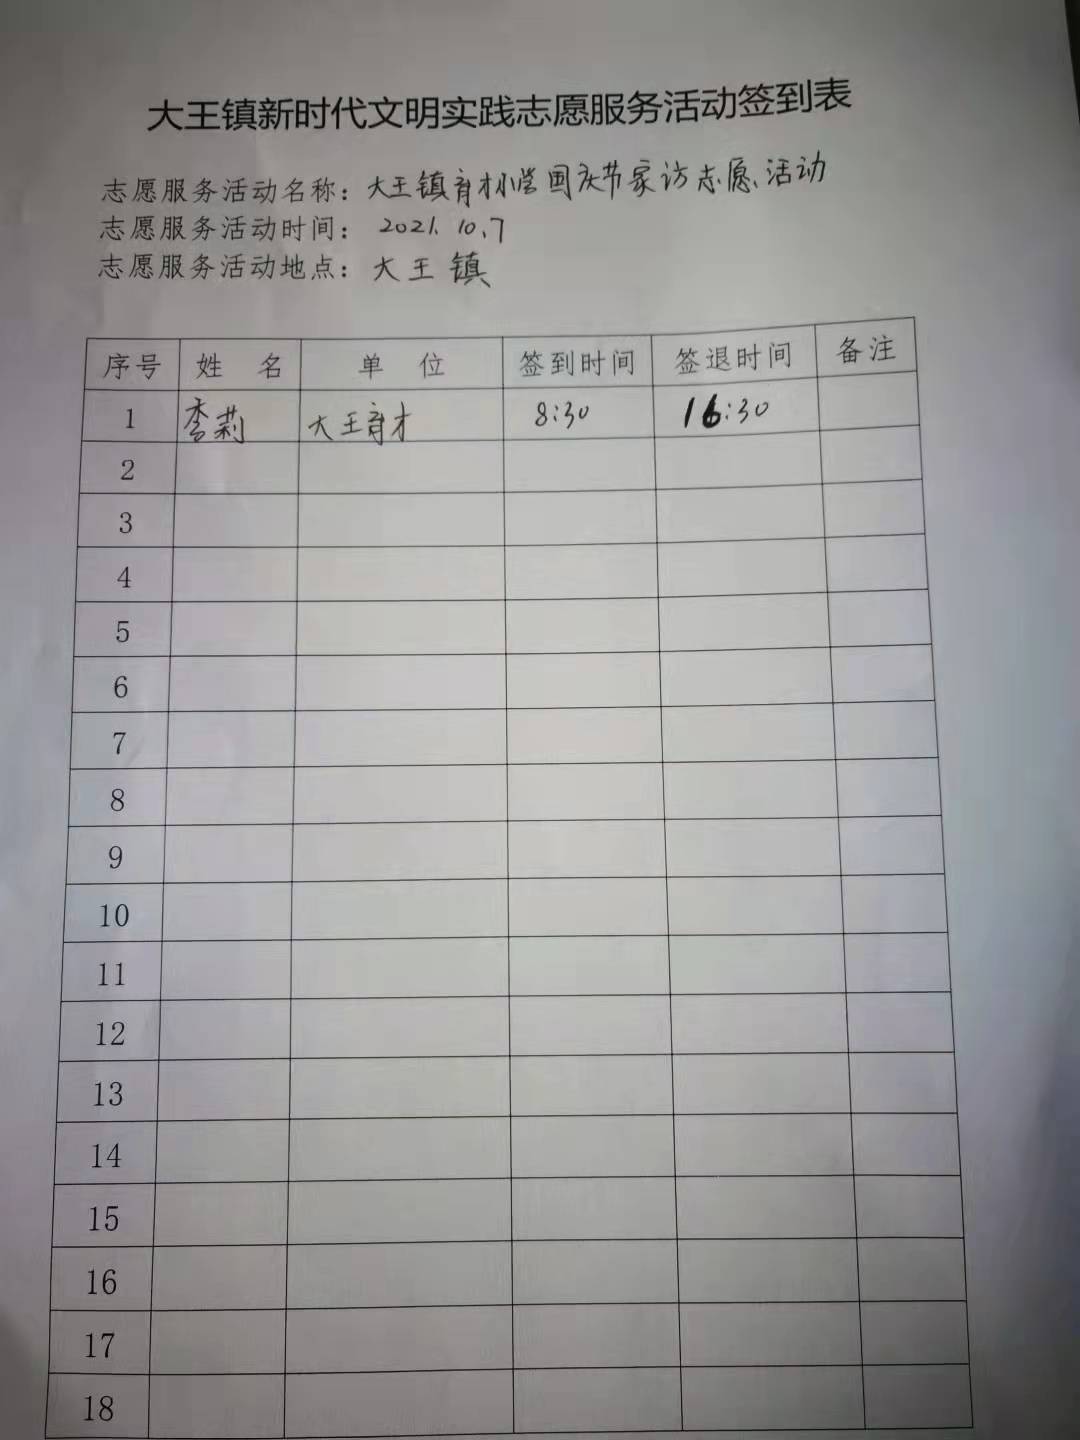 大王镇新时代文明实践志愿服务活动签到表
志愿服务活动名称：大王镇育才小学国庆节家访志愿活动
志愿服务活动时间：2021.10.7
志愿服务活动地点：大王镇
序号 姓 名 单 位 签到时间 签退时间 备注
1 李莉 大王育才 8:30 16:30
2
3
4
5
6
7
8
9
10
11
12
13
14
15
16
17
18